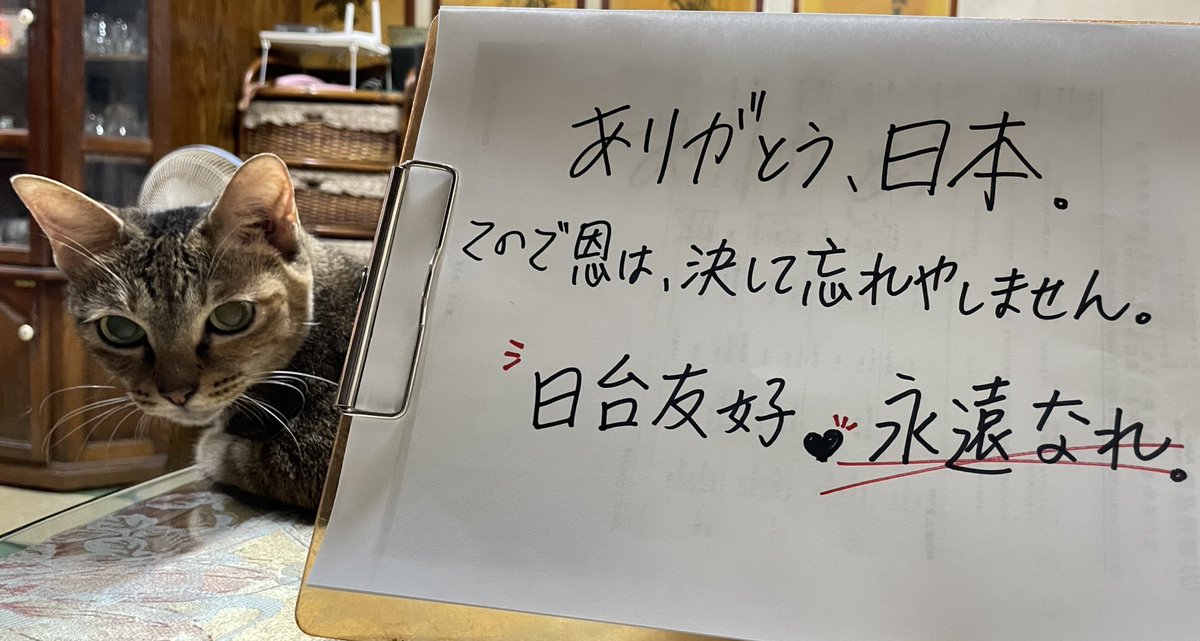 ありがとう、日本。
そので恩は、決して忘れやしません。
日台友好♥永遠なれ。